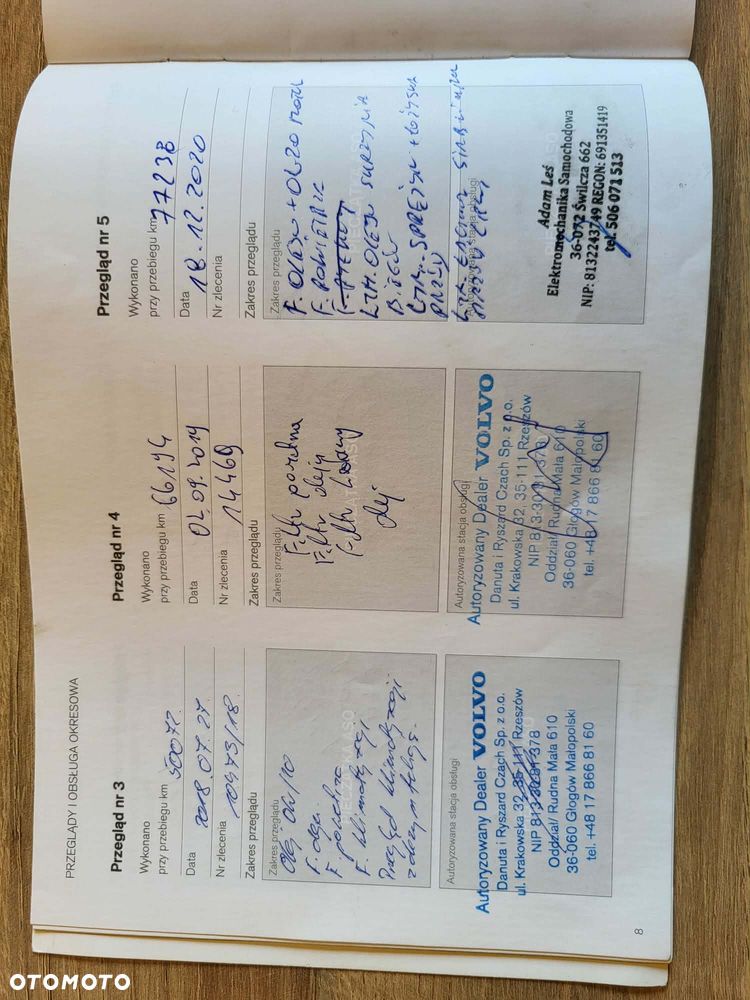 PRZEGLĄDY I OBSŁUGA OKRESOWA
Przegląd nr 3
Wykonano
przy przebiegu km 50072
Data 2018.07.27
Nr zlecenia 10473/18
Zakres przeglądu
Zakres przeglądu
F. oleju
F. powietrza
F. klimatyzacji
Przegląd klimatyzacji
Autoryzowana stacja obsługi
Autoryzowany Dealer VOLVO
Danuta i Ryszard Czach Sp. z o.o.
ul. Krakowska 32, 35-111 Rzeszów
NIP 813-30-81-378
Oddział/ Rudna Mała 610
36-060 Głogów Małopolski
tel. +48 17 866 81 60
Przegląd nr 4
Wykonano
przy przebiegu km 66194
Data 04.09.2019
Nr zlecenia 14469
Zakres przeglądu
Zakres przeglądu
Filtr
Filtr oleju
Filtr
olej
Autoryzowana stacja obsługi
Autoryzowany Dealer VOLVO
Danuta i Ryszard Czach Sp. z o.o.
ul. Krakowska 32, 35-111 Rzeszów
NIP 813-30-81-378
Oddział/ Rudna Mała 610
36-060 Głogów Małopolski
tel. +48 17 866 81 60
Przegląd nr 5
Wykonano
przy przebiegu km 77238
Data 18.12.2020
Nr zlecenia
Zakres przeglądu
Zakres przeglądu
F. OLEJU + OLEJ
F. POWIETRZA
OLEJU SKRZYNIA
SPRĘŻYN + ŁOŻYSKA
PRZÓD
Autoryzowana stacja obsługi
Adam Leś
Elektromechanika Samochodowa
36-072 Świlcza 662
NIP: 8132243749 REGON: 691351419
tel. 506 071 513
8
OTOMOTO